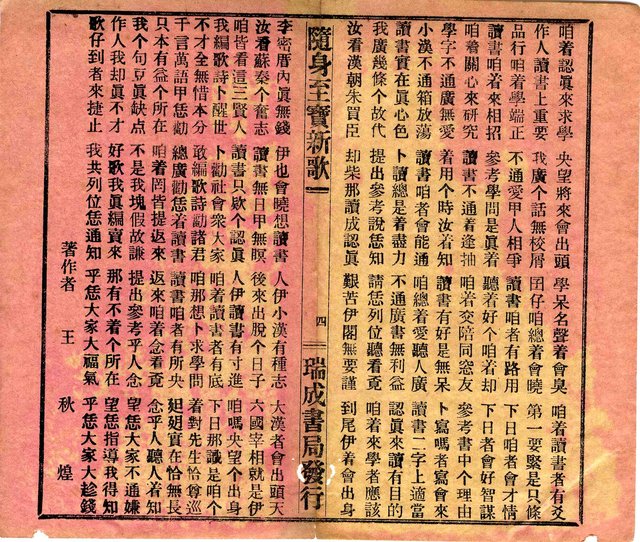 咱着認眞來求學 央望將來會出頭 學呆名聲着會臭 咱着讀書者有爻
作人讀書上重要 我廣个話無校厝 囝仔咱總着會曉 第一要緊是只條
品行咱着學端正 不通愛甲人相爭 讀書咱者有路用 下日咱者會才情
讀書咱着來相招 參考學問是眞着 聽着好个咱着却 下日者會好智謀
咱着關心來研究 讀書不通着逢抽 咱着交陪同窓友 參考書中个理由
學字不通廣無愛 着用个時汝着知 讀書有好是無呆 卜寫嗎者寫會來
小漢不通箱放蕩 讀書咱者會能通 咱總着愛聽人廣 讀書二字上適當
讀書實在眞心色 卜讀總是着盡力 不通廣書無利益 認眞來讀有目的
我廣幾條个故代 提出參考說恁知 請恁列位聽看覓 咱着來學者應該
汝看漢朝朱買臣 却柴那讀成認眞 艱苦伊閣無要謹 到尾伊着會出身
隨身至寶新歌 四 瑞成書局發行
李密厝內眞無錢 伊也會曉想讀書 人伊小漢有種志 大漢者會出頭天
汝看蘇秦个奮志 讀書無日甲無暝 後來出脫个日子 六國宰相就是伊
咱皆看這三賢人 讀書只欵个認眞 人伊讀書有寸進 咱嗎央望个出身
我編歌詩卜醒世 卜勸社會衆大家 咱着讀書者有底 下日那識是咱个
不才全無惜本分 敢編歌詩勸諸君 咱那想卜求學問 着對先生恰尊巡
千言萬語甲恁勸 總廣勸恁着讀書 讀書咱者有所央 實在恰無長
只本有益个所在 咱着罔皆提返來 返來咱着念看覓 念乎人聽人着知
我个句豆眞缺点 不是我塊假故謙 提出參考乎人念 望恁大家不通嫌
作人我却眞不才 好歌我眞編賣來 那有不着个所在 望恁指導我得知
歌仔到者來捷止 我共列位恁通知 乎恁大家大福氣 乎恁大家大趁錢
著作者 王秋煌